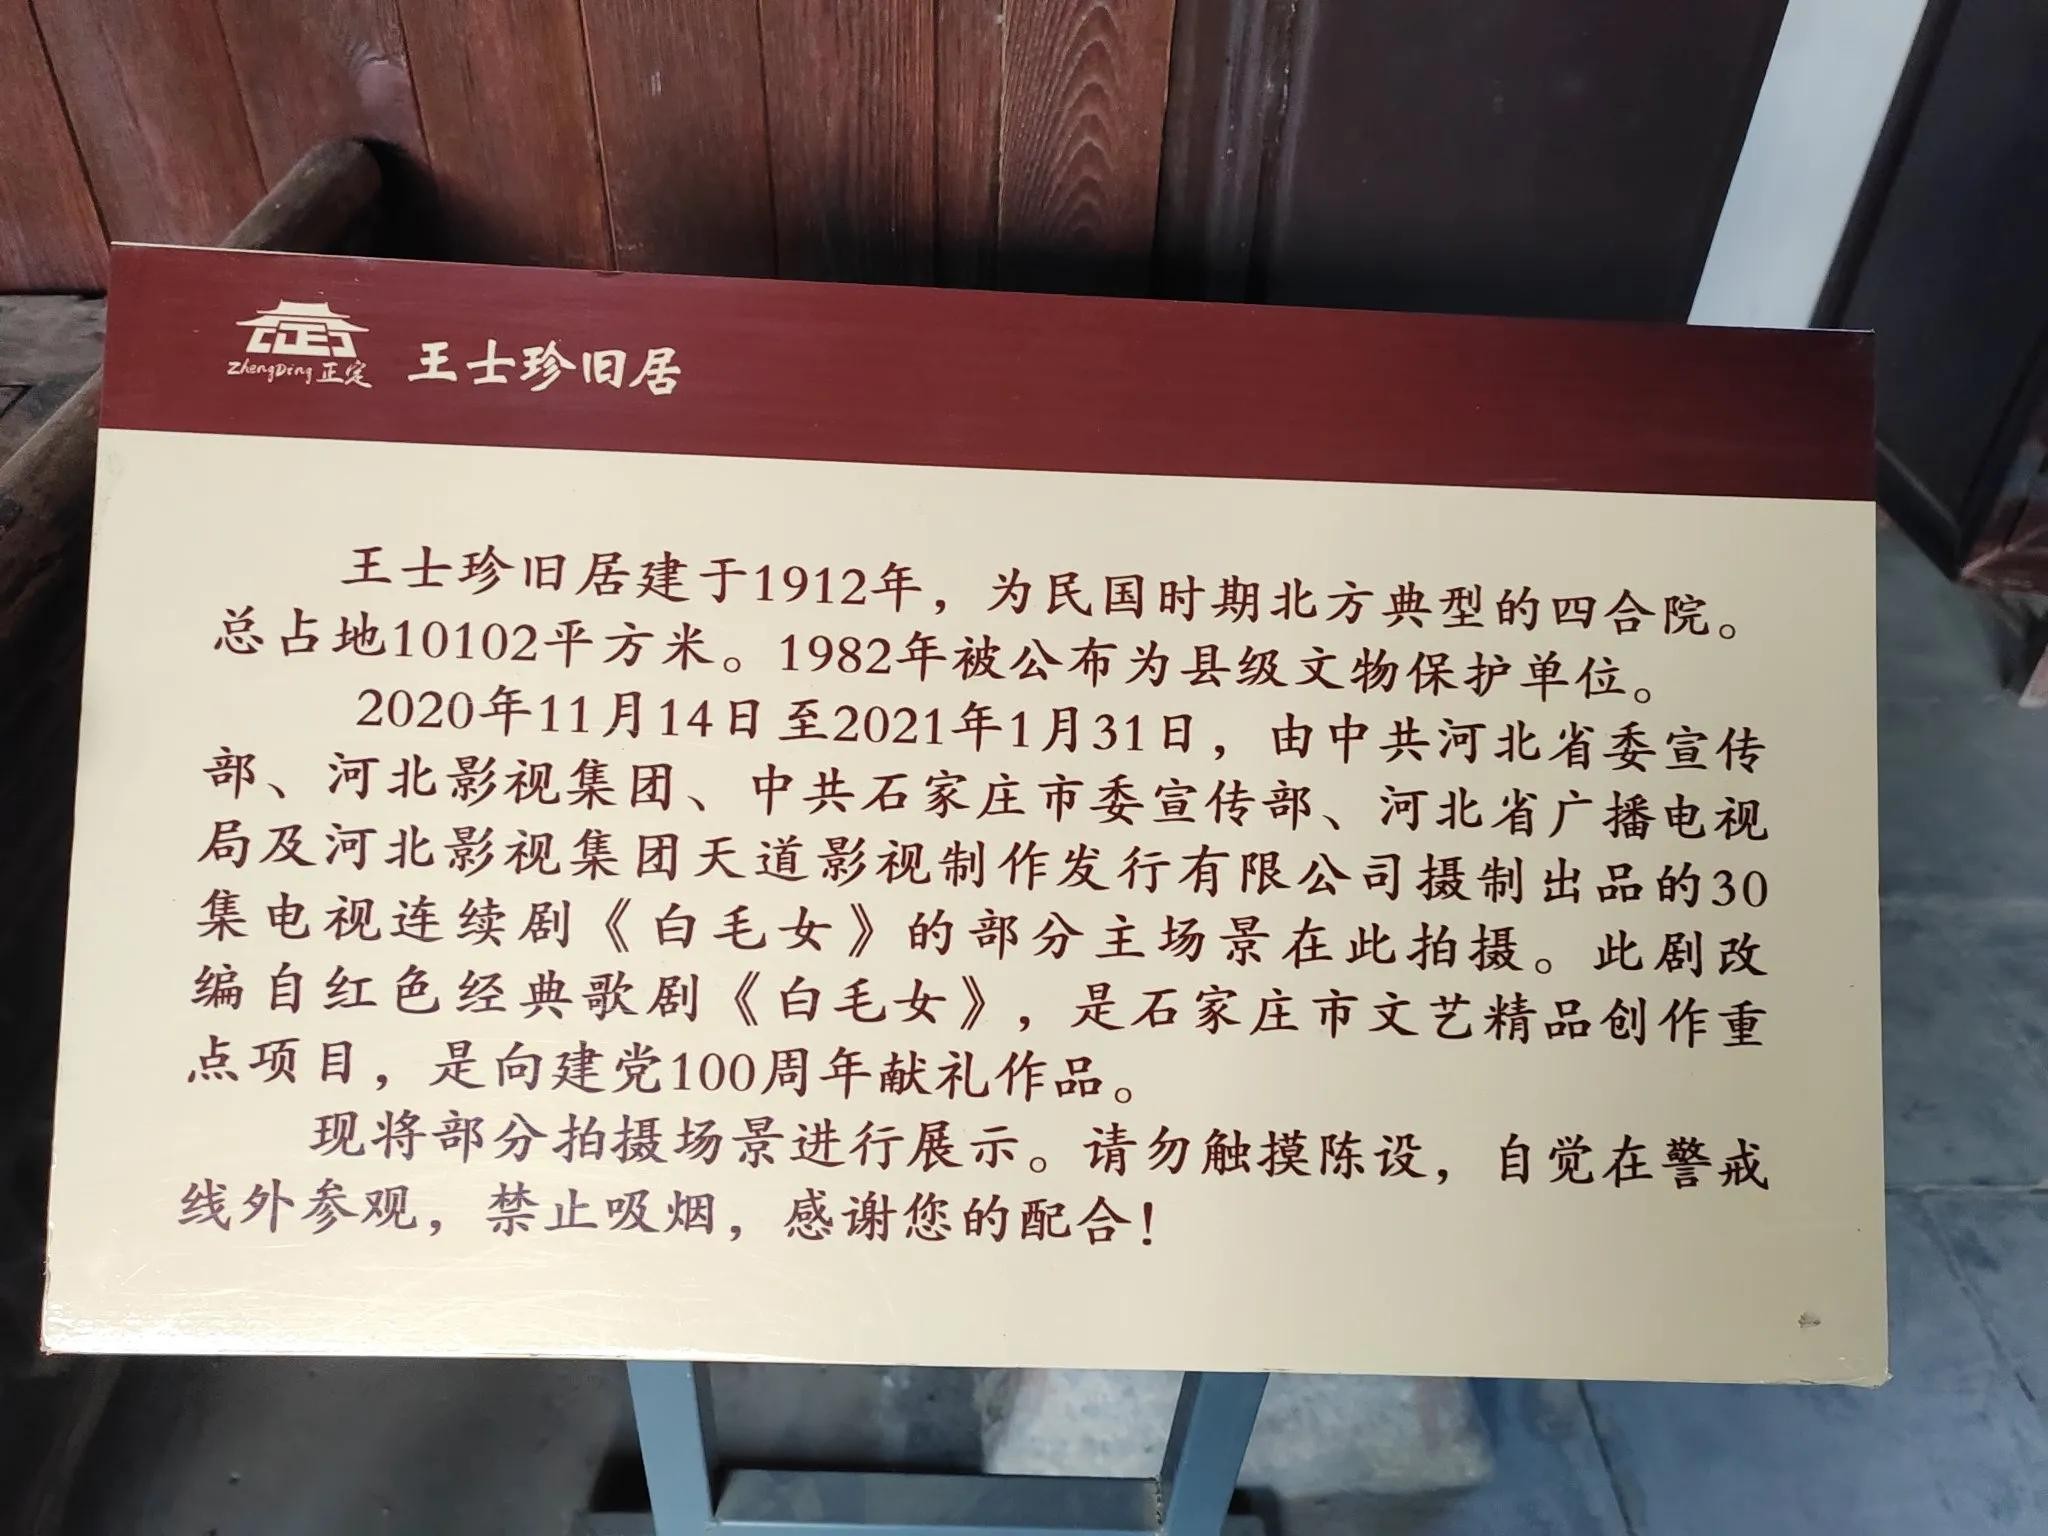 ZhengDing 正定
王士珍旧居
王士珍旧居建于1912年，为民国时期北方典型的四合院。
总占地10102平方米。1982年被公布为县级文物保护单位。
2020年11月14日至2021年1月31日，由中共河北省委宣传
部、河北影视集团、中共石家庄市委宣传部、河北省广播电视
局及河北影视集团天道影视制作发行有限公司摄制出品的30
集电视连续剧《白毛女》的部分主场景在此拍摄。此剧改
编自红色经典歌剧《白毛女》，是石家庄市文艺精品创作重
点项目，是向建党100周年献礼作品。
现将部分拍摄场景进行展示。请勿触摸陈设，自觉在警戒
线外参观，禁止吸烟，感谢您的配合！